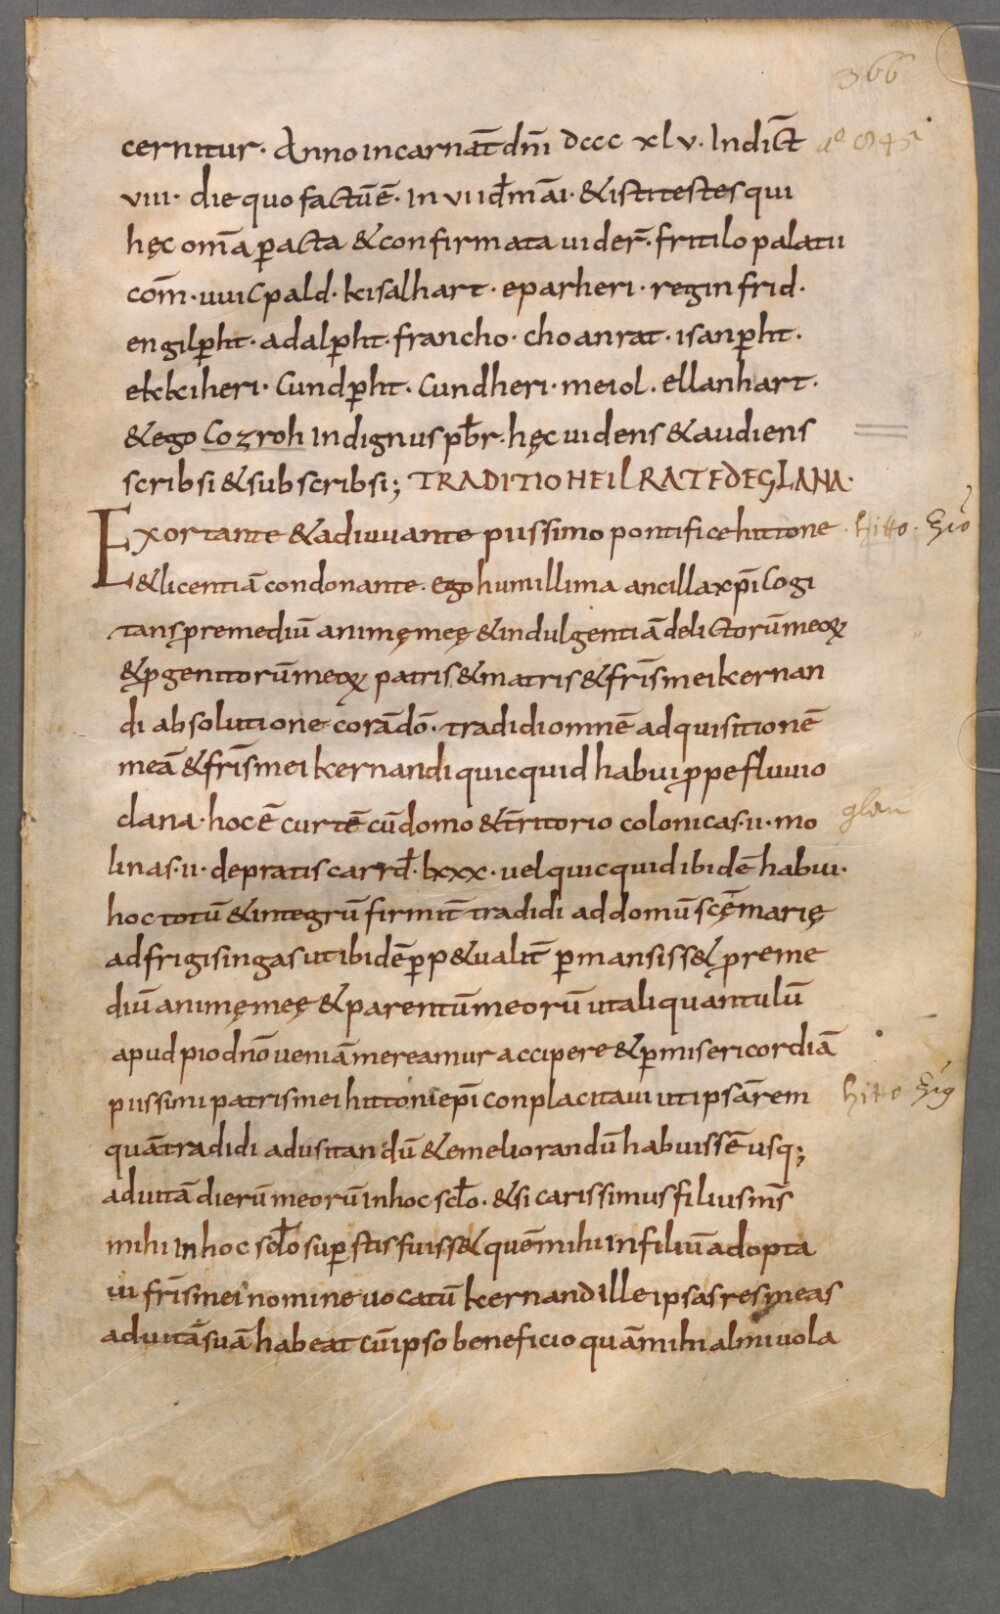 366
cernitur· Anno incarnat̄ dn̄i dccc xlv· Indict̄ aº 845
viii· die quo factū ē· In vii id̄ mai· & isti testes qui
hęc om̄a ꝑacta & confirmata uider̄· fritilo palatii
com̄· uuicpald· kisalhart· eparheri· reginfrid·
engilꝑht· adalꝑht· francho· choanrat· isanꝑht·
ekkiheri· Cundꝑht· Cundheri· meiol· ellanhart·
& ego Cozroh Indignus pb̄r· hęc uidens & audiens
scribsi & subscribsi; TRADITIO HEILRATE DE GLANA·
Exortante & adiuuante piissimo pontifice hittone· hitto
& licentiā condonante· ego humillima ancilla xp̄i Cogi
tans ꝓ remediū animę meę & indulgentiā delictorū meoꝝ
& ꝓgenitorū meoꝝ patris & matris & fr̄is mei kernan
di absolutione corā dō· tradidi omnē adquisitionē
meā & fr̄is mei kernandi quicquid habui ꝓpe fluuio
clana· hoc ē curtē cū domo & t̄ritorio colonicas·ii· mo glan
linas·ii· de pratis carrd̄· lxxx· uel quicquid ibidē habui·
hoc totū & integrū firmit̄ tradidi ad domū scę̄ marię
ad frigisingas ut ibidē ꝑp&ualit̄ ꝑmansiss& ꝓ reme
diū animę meę & parentū meorū ut aliquantulū
apud pio dn̄o ueniā mereamur accipere & ꝑ misericordiā
piissimi patris mei hittoni ep̄i conplacitaui ut ipsā rem hitto
quā tradidi ad usitandū & emeliorandū habuissē usq;
ad uitā dierū meorū In hoc scl̄o· & si carissimus filius ms̄
mihi In hoc scl̄o suꝑstis fuiss& quē mihi In filiū adopta
ui fr̄is mei nomine uocatū kernand ille ipsas res meas
ad uitā suā habeat cū ipso beneficio quā mihi almiuola